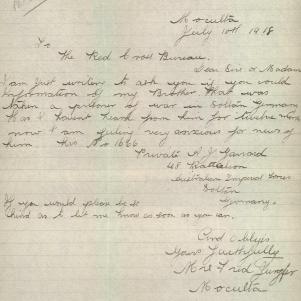 Moculta
July 10th 1918
To
The Red Cross Bureau.
Dear Sirs or Madam
I am just writing to ask you if you would
information of my Brother that was
taken a prisoner of war in Soltau Germany
Has I havent heard from him for twelve
now I am feeling very anxious for news of
him. His No 1666
Private A J Garrard
48 Battalion
Australian Imperial Forces
Soltau
Germany.
If you would please be so
kind as to let me know as soon as you can.
And oblige
Yours faithfully
Mrs Fred
Moculta